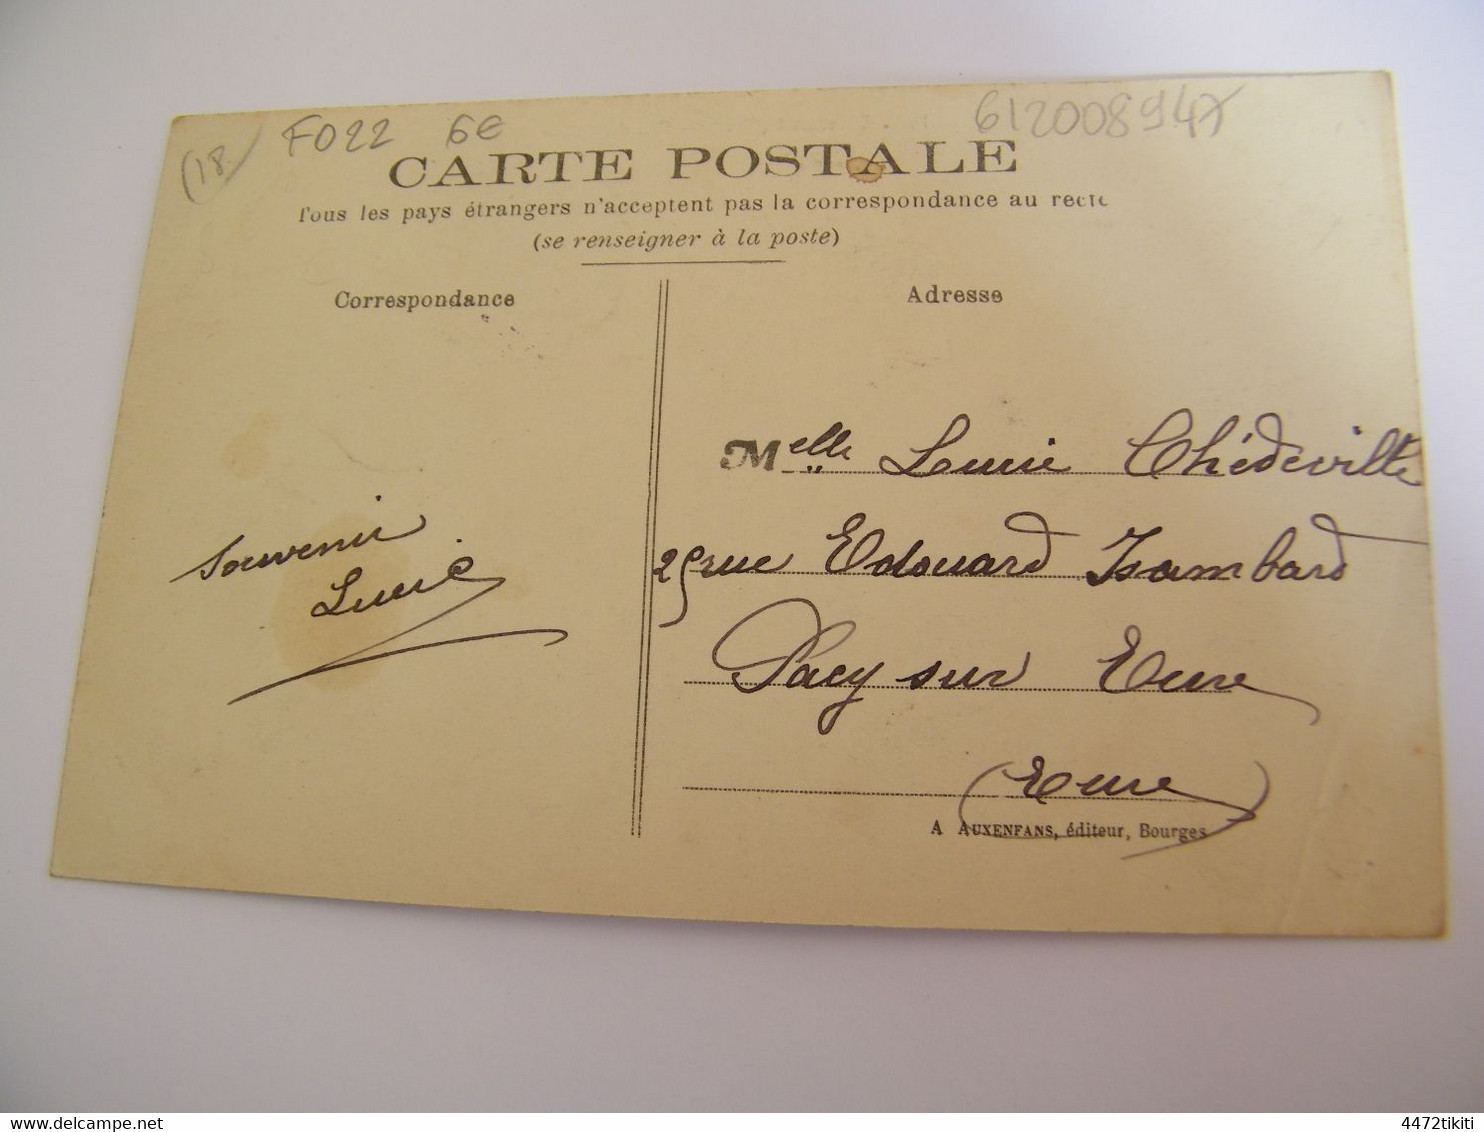 (18)
F022 6€
612008947
CARTE POSTALE
Tous les pays étrangers n'acceptent pas la correspondance au recto
(se renseigner à la poste)
Correspondance
Souvenir
Lucie
Adresse
Melle Lucie Chédeville
25 rue Edouard Isambard
Pacy sur Eure
(Eure)
A AUXENFANS, éditeur, Bourges
delcampe.net
4472tikiti